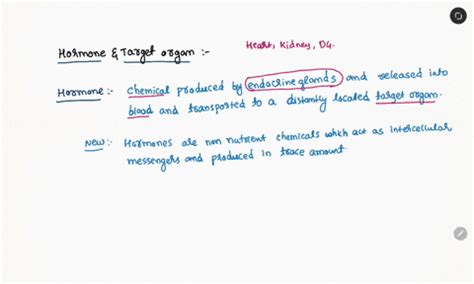 Hormone & Target organ :-
Heart, Kidney, DG.
Hormone :- Chemical produced by endocrine glands and released into
blood and transported to a distantly located target organ.
New :- Hormones are non nutrient chemicals which act as intercellular
messengers and produced in trace amount